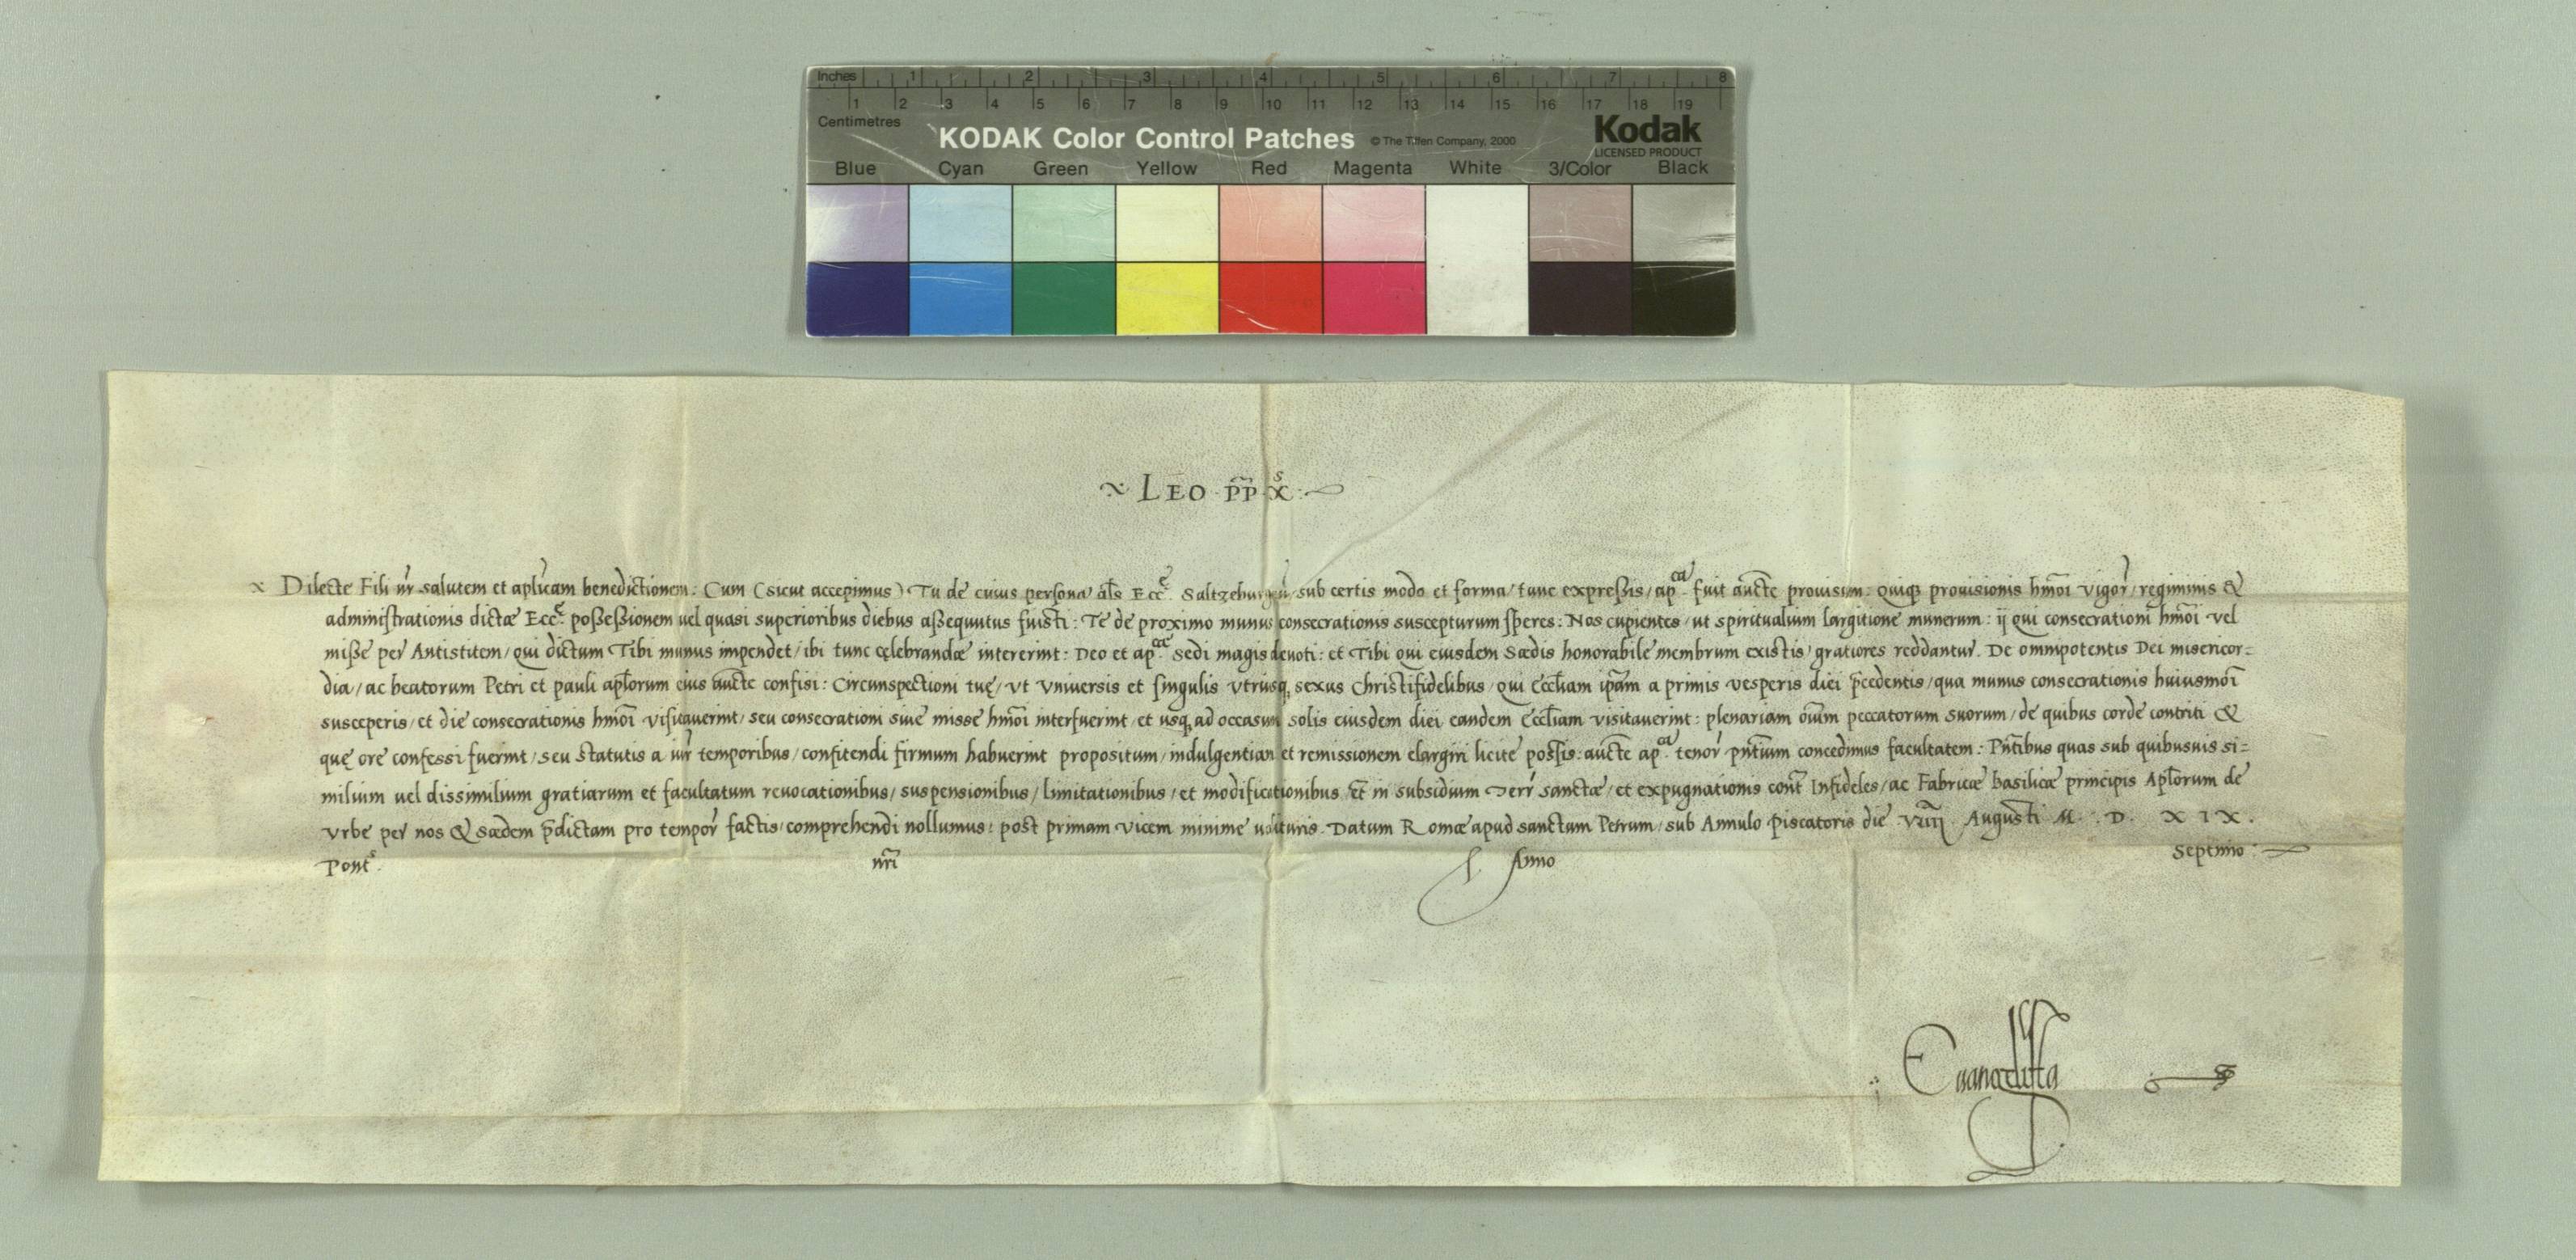 Inches 1 2 3 4 5 6 7 8
1 2 3 4 5 6 7 8 9 10 11 12 13 14 15 16 17 18 19
Centimetres
KODAK Color Control Patches © The Tiffen Company, 2000 Kodak
LICENSED PRODUCT
Blue Cyan Green Yellow Red Magenta White 3/Color Black
LEO pp̄ Xˢ
Dilecte Fili nr̄ salutem et aplicam benedictionem: Cum (sicut accepimus) Tu de cuius persona al̄s Eccᵉ. Saltzeburgeñ/ sub certis modo et forma/ tunc expressis/ apᶜᵃ fuit aucte prouisum: quiq; prouisionis hmōi vigor̄/ regiminis &
administrationis dictæ Eccᵉ. possessionem uel quasi superioribus diebus assequutus fuisti: Te de proximo munus consecrationis suscepturum speres: Nos cupientes/ ut spiritualium largitione munerum: ij qui consecrationi hmōi vel
misse per Antistitem/ qui dictum Tibi munus impendet/ ibi tunc celebrandæ intererint: Deo et apᶜᵉ. Sedi magis deuoti: et Tibi qui eiusdem Sædis honorabile membrum existis/ gratiores reddantur. De omnipotentis Dei misericor=
dia/ ac beatorum Petri et pauli apl̄orum eius aucte confisi: Circunspectioni tuę/ vt vniuersis et singulis vtriusq; sexus Christifidelibus/ qui Eccl̄iam ip̄am a primis vesperis diei p̄cedentis/ qua munus consecrationis huiusmōi
susceperis/ et die consecrationis hmōi visitauerint/ seu consecrationi siue misse hmōi interfuerint/ et usq; ad occasum solis eiusdem diei eandem Eccl̄iam visitauerint: plenariam oīum peccatorum suorum/ de quibus corde contriti &
quę ore confessi fuerint/ seu statutis a iur̄ temporibus/ confitendi firmum habuerint propositum/ indulgentiam et remissionem elargiri licite possis: aucte apᶜᵃ. tenor̄ pn̄tium concedimus facultatem: Pn̄tibus quas sub quibusuis si=
milium uel dissimilium gratiarum et facultatum reuocationibus/ suspensionibus/ limitationibus/ et modificationibus et̄ in subsidium Terr̄ sanctæ/ et expugnationis cont̄ Infideles/ ac Fabricæ basilicæ principis Apl̄orum de
Vrbe per nos & sædem p̄dictam pro tempor̄ factis/ comprehendi nollumus: post primam vicem minime ualituris. Datum Romæ apud sanctum Petrum/ sub Annulo piscatoris die Augusti M. D. XIX.
Pontˢ. nr̄i Anno Septimo
Euangelista